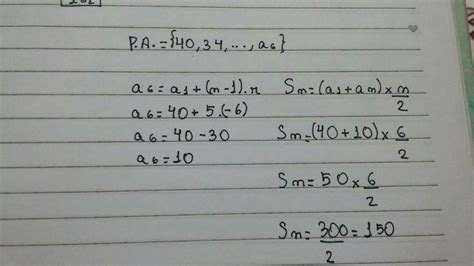 P.A. = {40, 34, ..., a6}
a6 = a1 + (n-1).r
a6 = 40 + 5.(-6)
a6 = 40 - 30
a6 = 10
Sn = (a1 + an) x n/2
Sn = (40 + 10) x 6/2
Sn = 50 x 6/2
Sn = 300/2 = 150